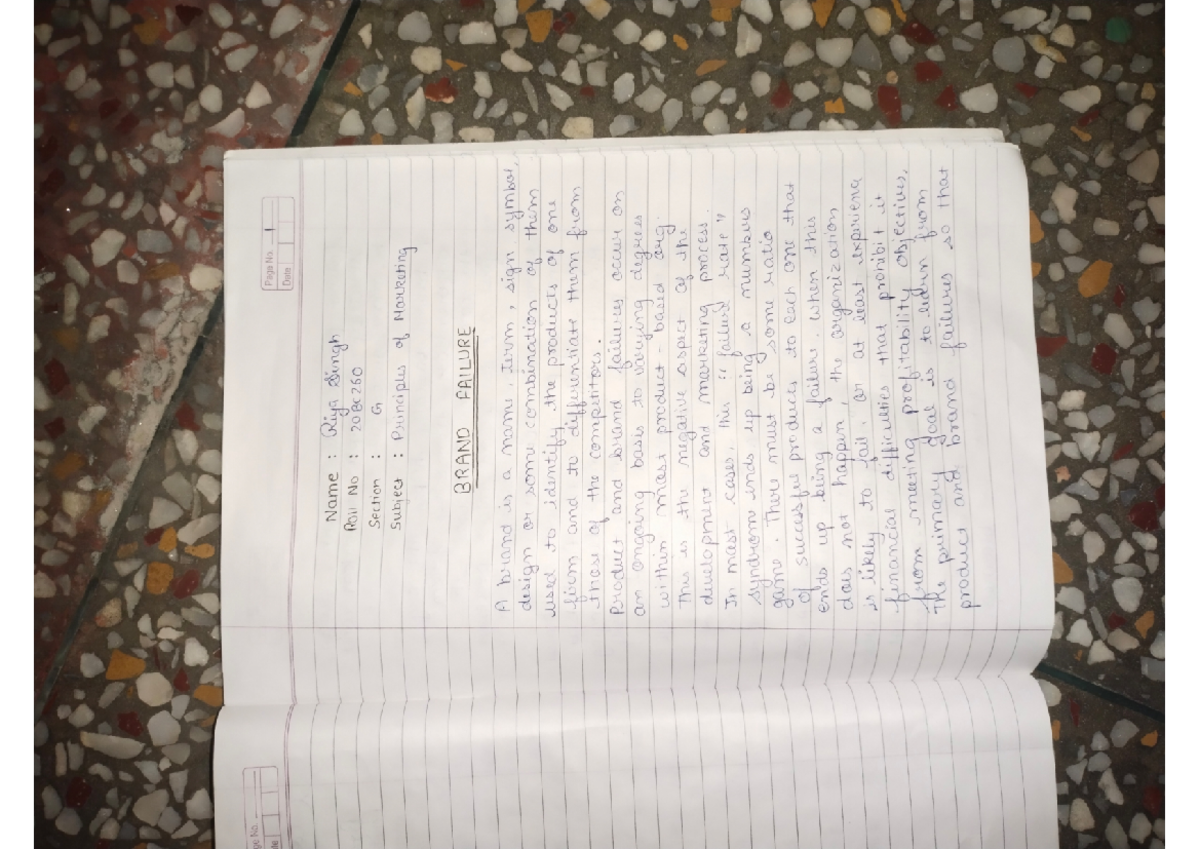 Page No. 1
Date
Name : Riya Singh
Roll No : 20BC260
Section : G
Subject : Principles of Marketing
BRAND FAILURE
A brand is a name, term, sign symbol,
design or some combination of them
used to identify the products of one
firm and to differentiate them from
those of the competitors.
Product and brand failures occur on
an ongoing basis to varying degrees
within most product-based org.
This is the negative aspect of the
development and marketing process.
In most cases, this "failure rate"
syndrom ends up being a numbers
game. There must be some ratio
of successful produces to each one that
ends up being a failure. When this
does not happen, the organization
is likely to fail, or at least experieng
financial difficulties that prohibit it
from meeting profitability objectives.
The primary goal is to learn from
product and brand failures so that
ge No.
Date